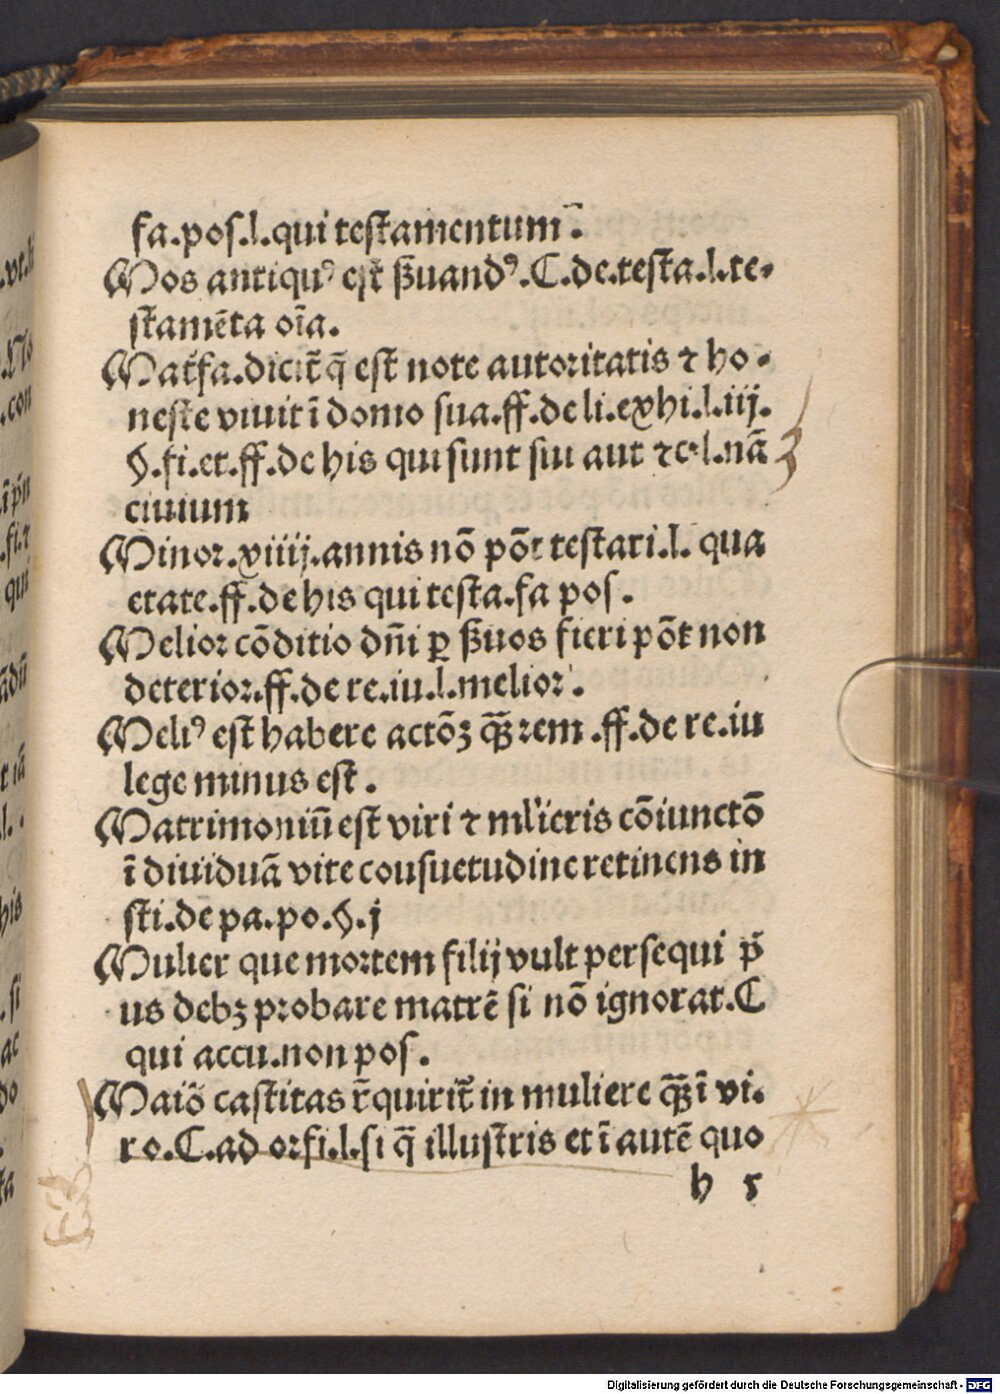 fa.pos.l.qui testamentum̄.
Mos antiquꝰ est ẞuandꝰ.C.de.testa.l.te-
stamēta oīa.
Mat̄fa.dicit̄ q̄ est note autoritatis ⁊ ho-
neste viuit ī domo sua.ff.de li.exhi.l.iij.
§.fi.et.ff.de his qui sunt sui aut ⁊c.l.nā
ciuium
Minor.xiiij.annis nō pōt testari.l. qua
etate.ff.de his qui testa.fa pos.
Melior cōditio dn̄i ꝑ ẞuos fieri pōt non
deterior.ff.de re.iu.l.melior.
Meliꝰ est habere actōꝫ qꝫ̄ rem .ff.de re.iu
lege minus est.
Matrimoniū est viri ⁊ ml̓ieris cōiunctō
ī diuiduā vite cousuetudine retinens in
sti.de pa.po.§.j
Mulier que mortem filij vult persequi p̄
us debꝫ probare matrē si nō ignorat.C
qui accu.non pos.
Maiō castitas r̄quirit̄ in muliere qꝫ̄ ī vi-
ro.C.ad orfi.l.si q̄ illustris et ī autē quo
h 5
Digitalisierung gefördert durch die Deutsche Forschungsgemeinschaft - DFG